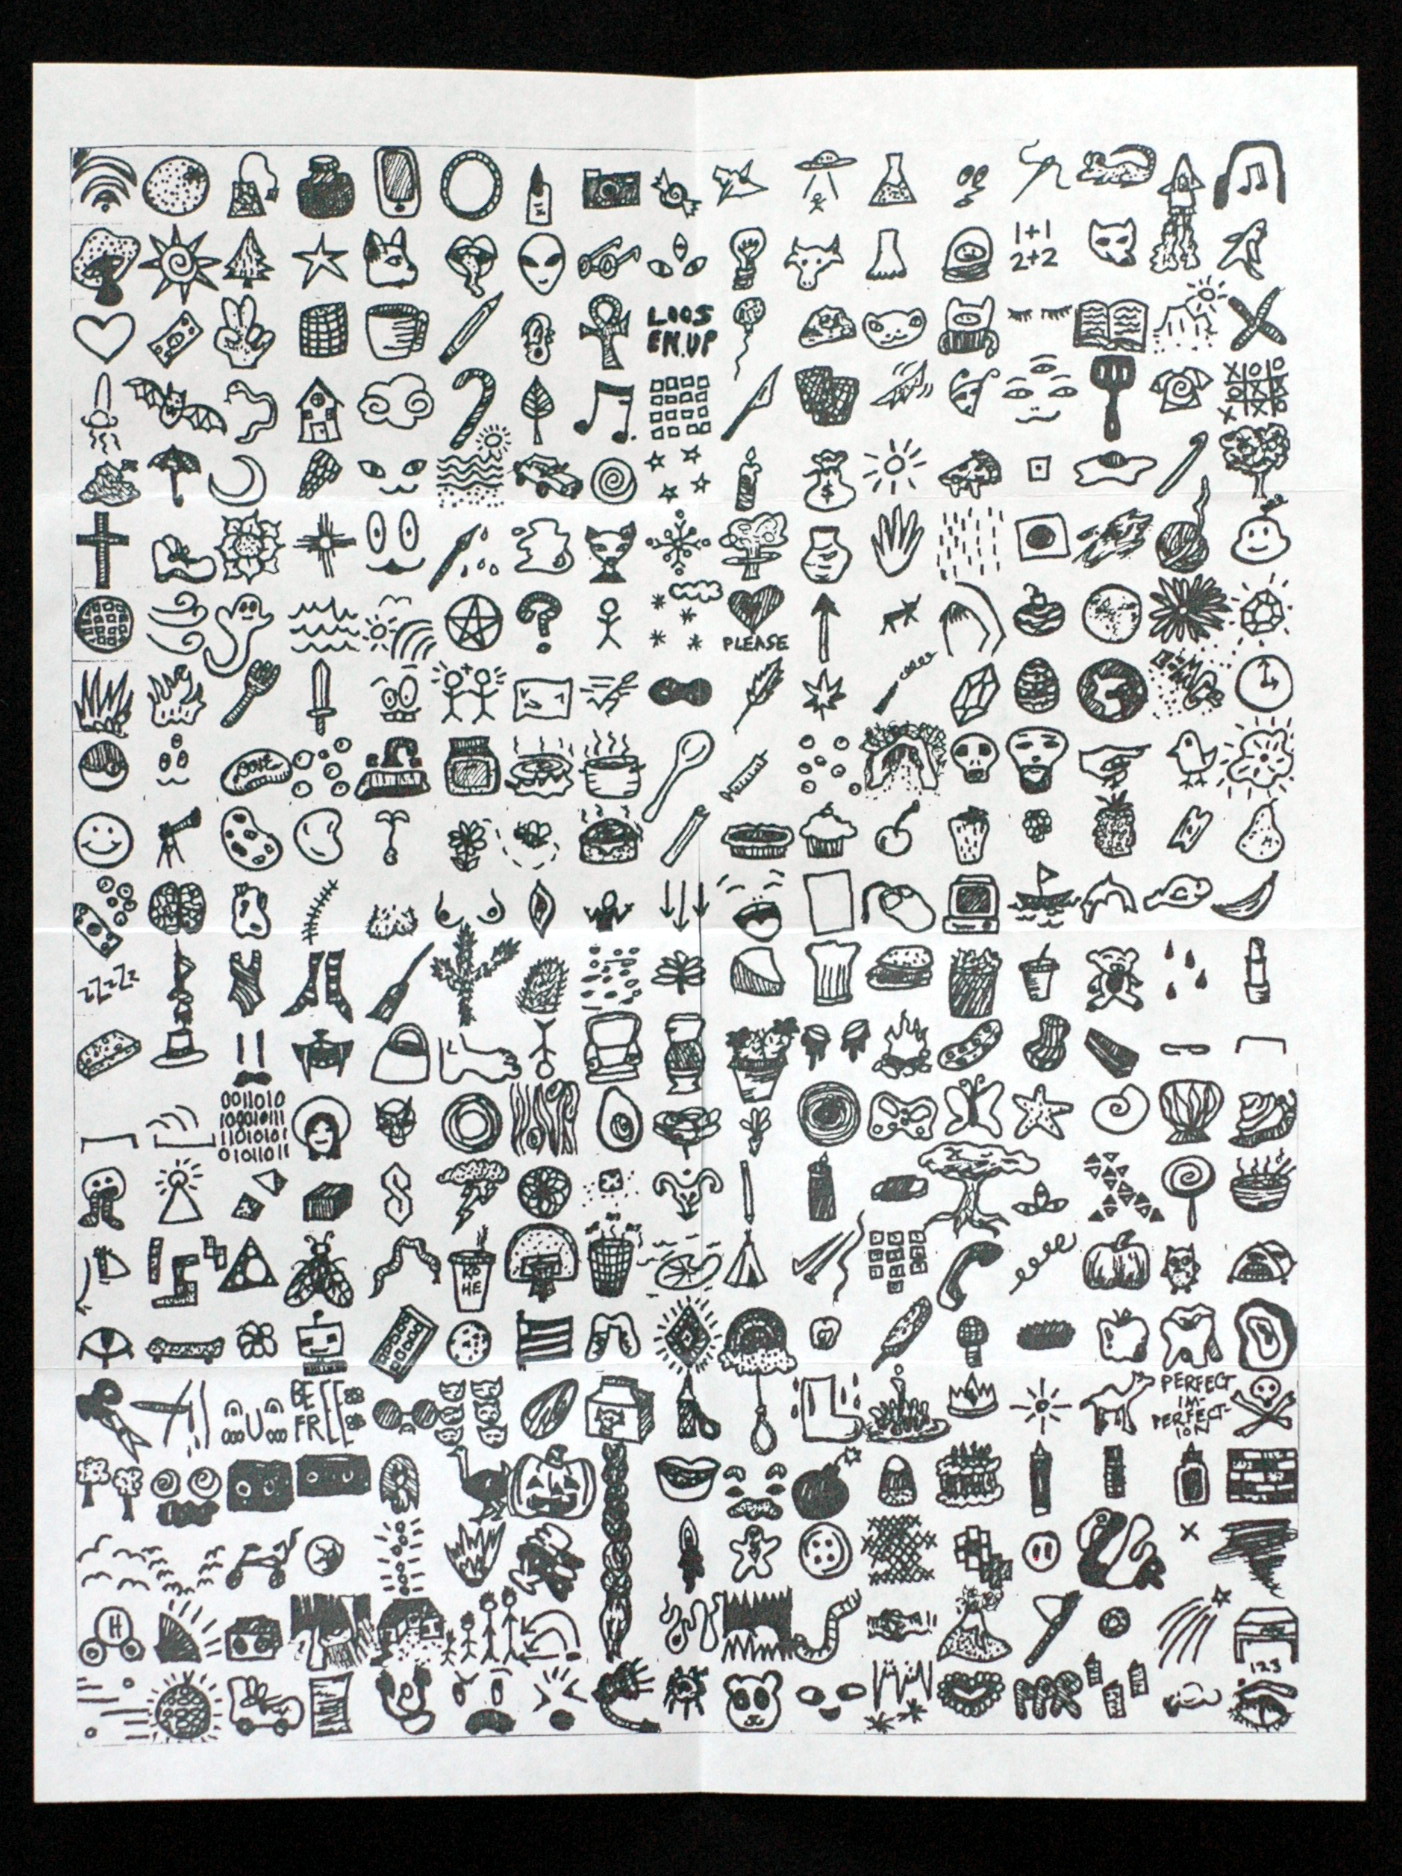 1+1
2+2
LOOS
EN.UP
PLEASE
zZzZz
0011010
100010111
11010101
01011011
BE
FREE
PERFECT
IM-
PERFECT-
ION
H
123